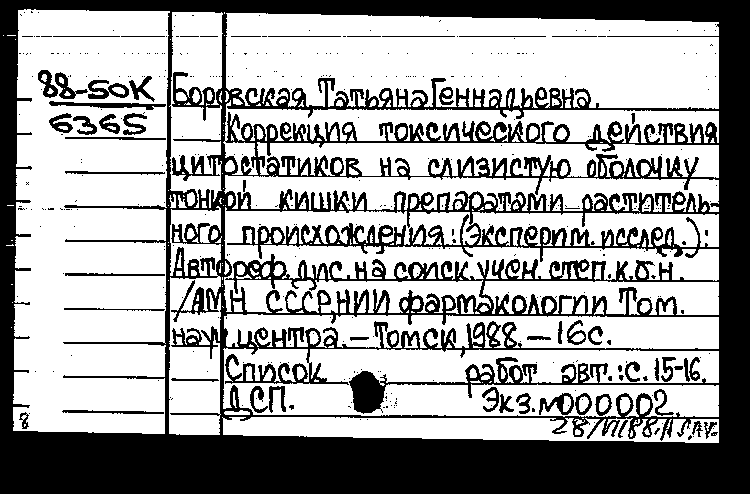 88-50К Боровская, Татьяна Геннадьевна.
6365 Коррекция токсического действия
цитостатиков на слизистую оболочку
тонкой кишки препаратами раститель-
ного происхождения: (Эксперим. исслед.):
Автореф. дис. на соиск. учен. степ. к.б.н.
/АМН СССР, НИИ фармакологии Том.
науч. центра. – Томск, 1988. – 16с.
Список работ авт.: с. 15-16.
ДСП. Экз. №000002.
8